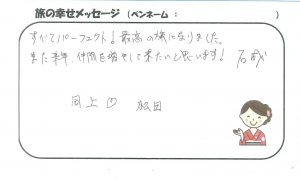 旅の幸せメッセージ (ペンネーム: )
すべてパーフェクト!最高の旅になりました。
また来年、仲間を増やして来たいと思います! 石成
同上♡ 松田